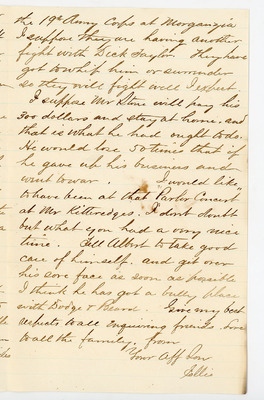 the 19th Army Corps at Morganzia
I suppose they are having another
fight with Dick Taylor. They have
got to whip him or surrender
so they will fight well I expect.
I suppose Mr Stone will pay his
300 dollars and stay at home. and
that is what he had ought to do.
He would lose 50 times that if
he gave up his business and
went to war. I would like
to have been at that Parlor Concert
at Mr Kittredges. I dont doubt
but what you had a very nice
time. Tell Albert to take good
care of himself. and get over
his sore face as soon as possible
I think he has got a bully place
with Dodge & Beard. Give my best
respects to all enquiring friends. love
to all the family. from
Your Aff Son